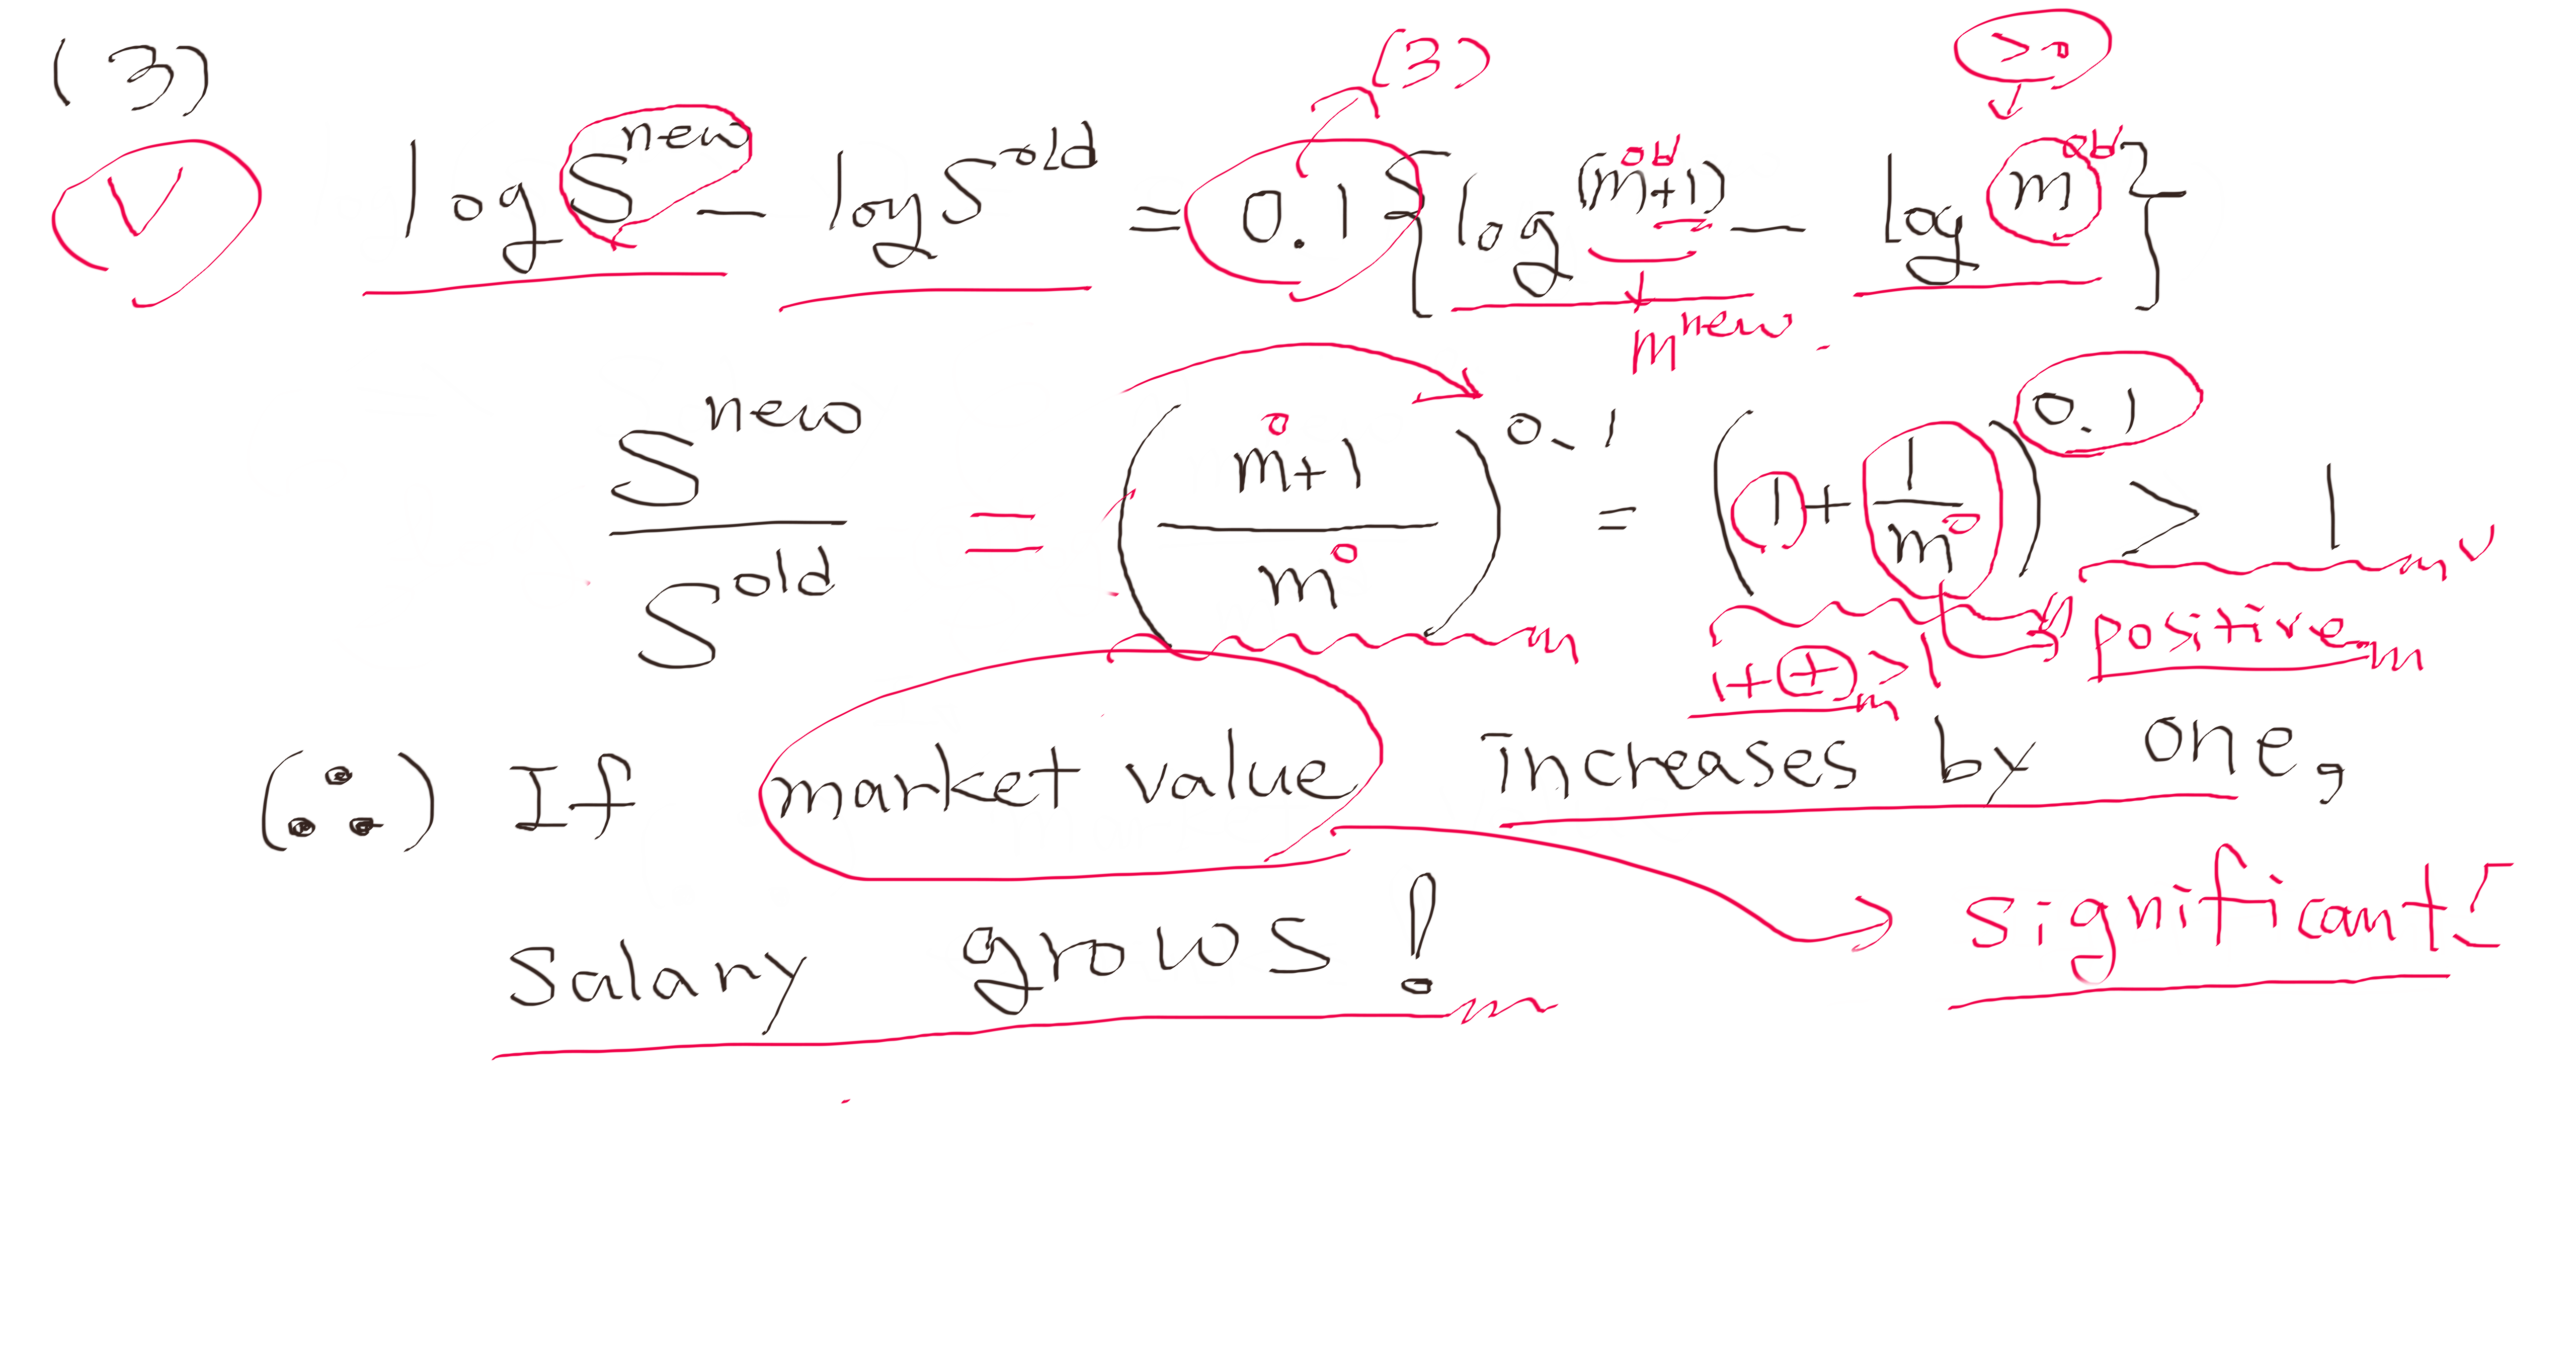 (3)
(3) >0
V log S^new - log S^old = 0.1 { log (m^old+1) - log m^old }
m^new.
S^new / S^old = ( m^o+1 / m^o )^0.1 = ( 1 + 1/m^o )^0.1 > 1
1+(+) > 1 positive
(∴) If market value increases by one,
Salary grows! significant!